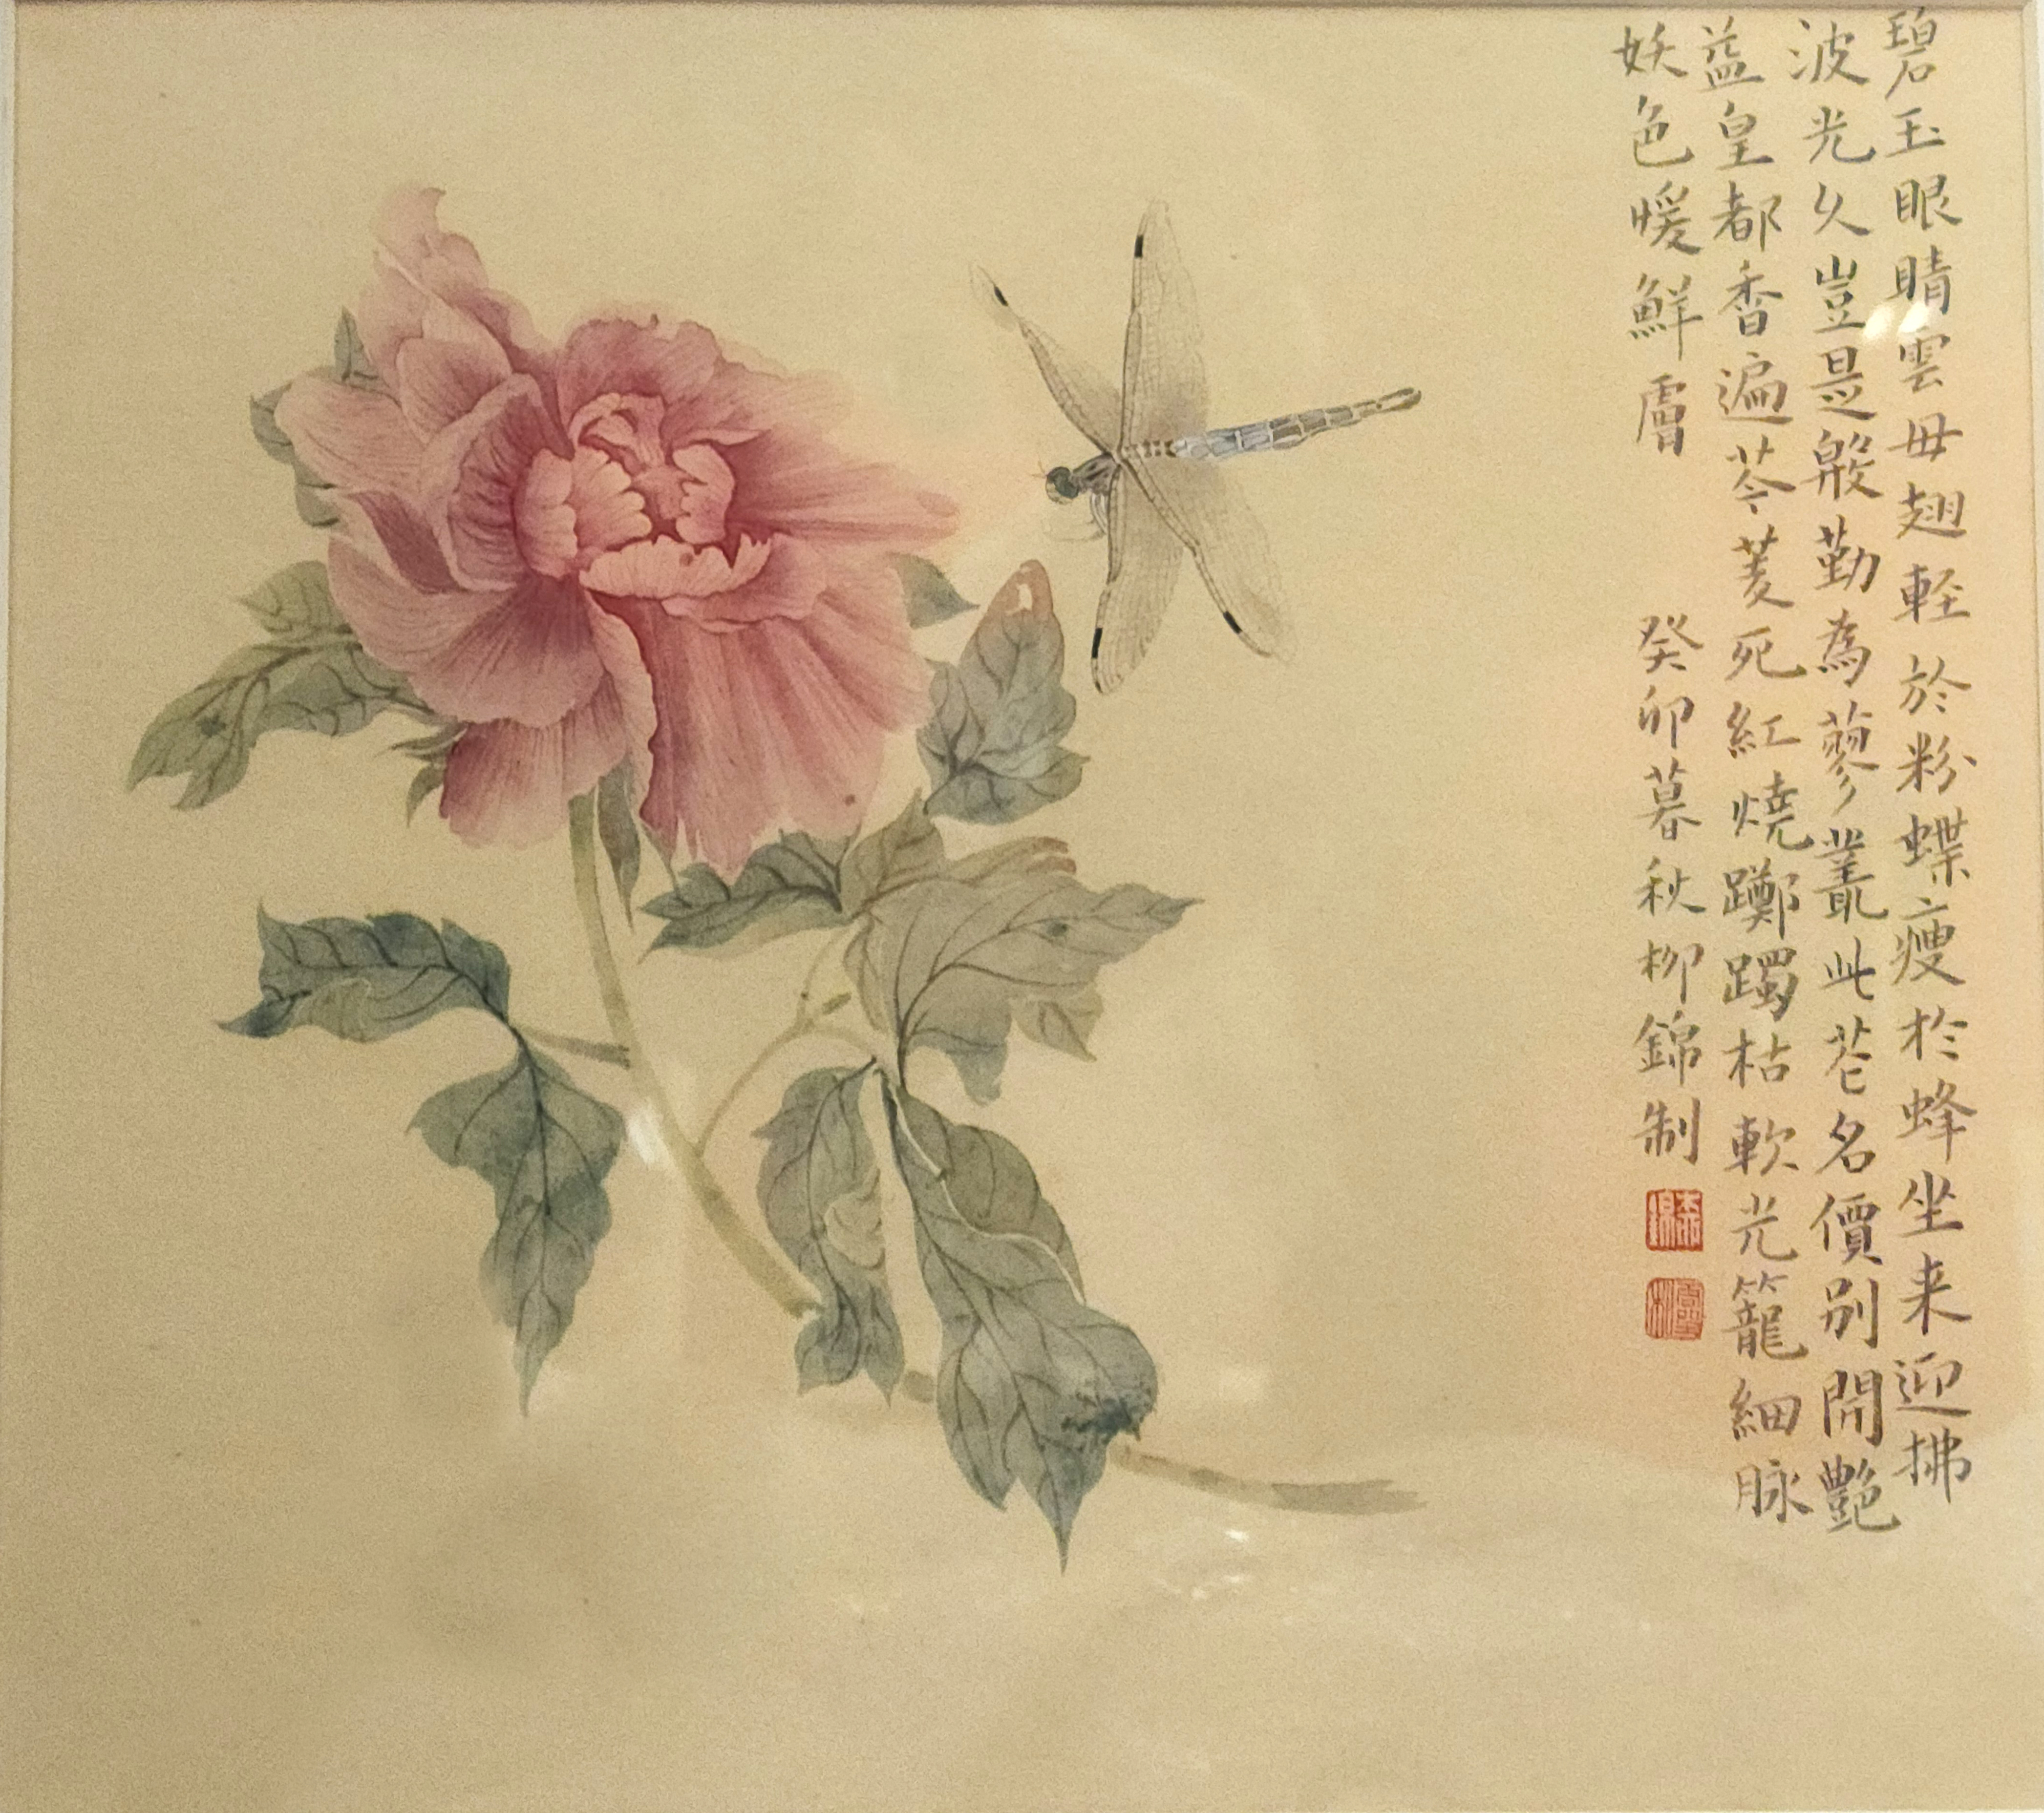 碧玉眼睛雲母翅輕於粉蝶瘦於蜂坐来迎拂
波光久豈是殷勤為蓼叢此芲名價別開艷
益皇都香遍苓菱死紅燒躑躅枯軟光籠細脉
妖色暖鮮膚
癸卯暮秋柳錦制